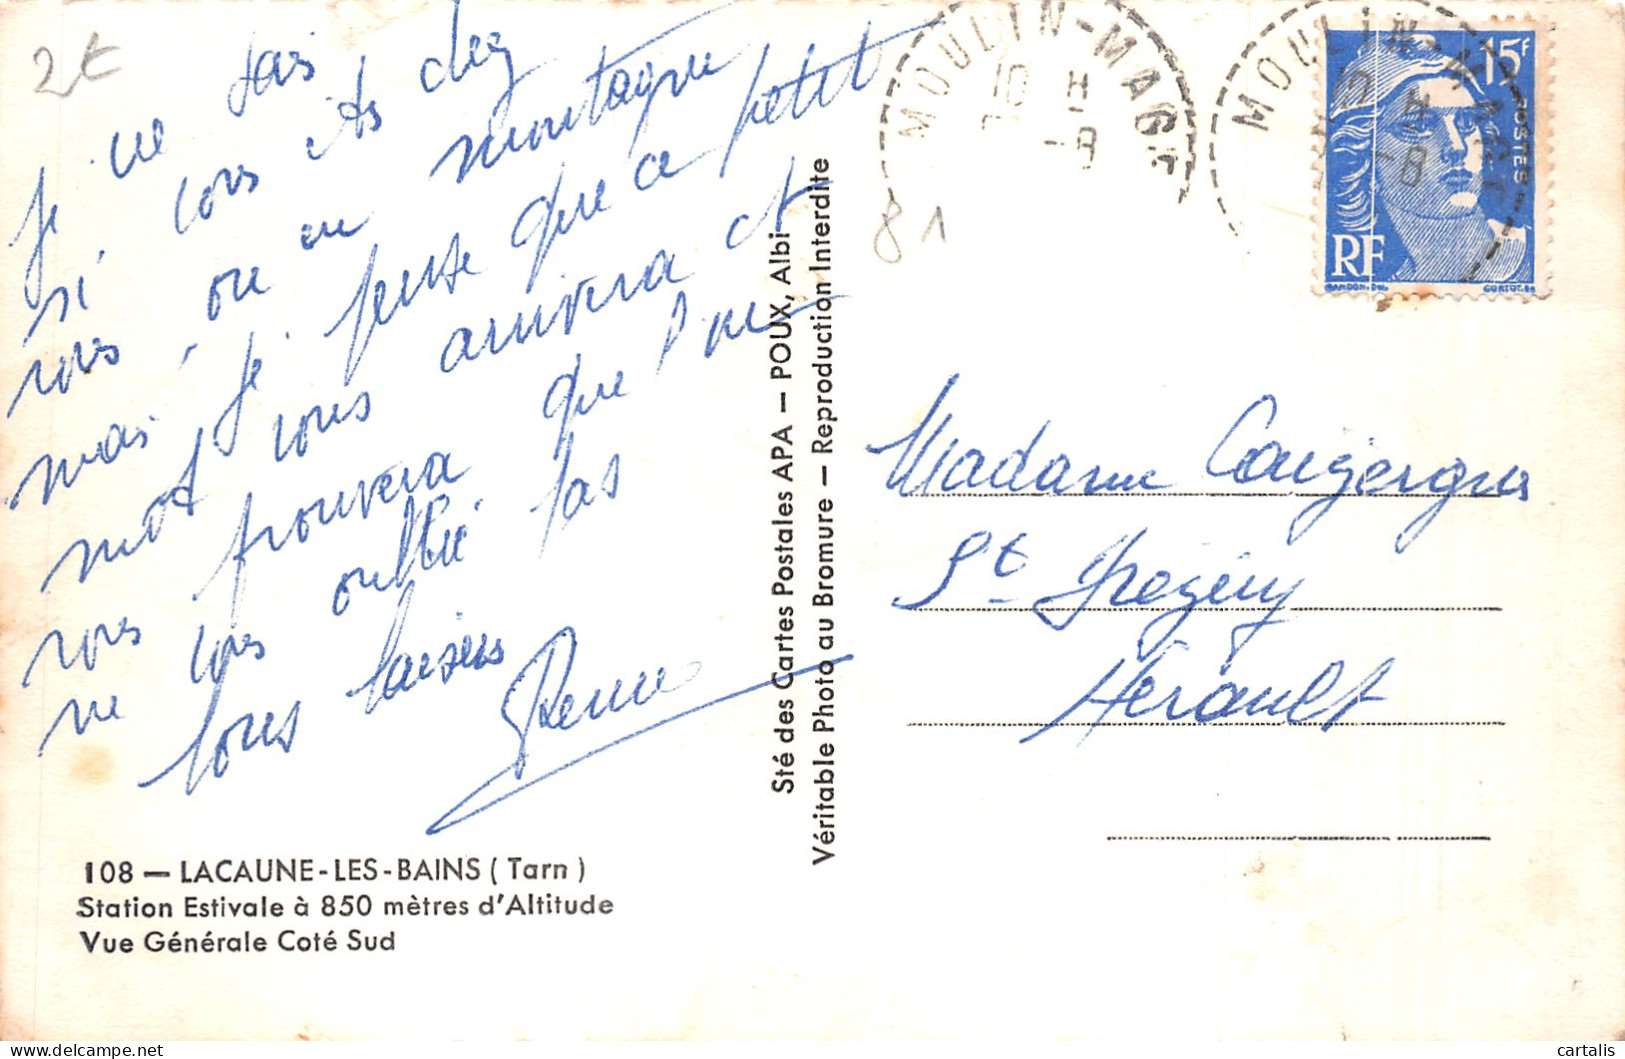 2€
Je ne sais
si vous êtes chez
vous ou en montagne
mais je pense que ce petit
mot vous arrivera et
vous prouvera que l'on
ne vous oublie pas
bons baisers
MOULIN-MAGE
10 H
-8
MOULIN-MAGE
10 H
-8
15F
POSTES
RF
GANDON.DEL
81
Sté des Cartes Postales APA — POUX, Albi
Véritable Photo au Bromure — Reproduction Interdite
Madame Caizergues
St
Hérault
108 — LACAUNE-LES-BAINS (Tarn)
Station Estivale à 850 mètres d'Altitude
Vue Générale Coté Sud
cartalis